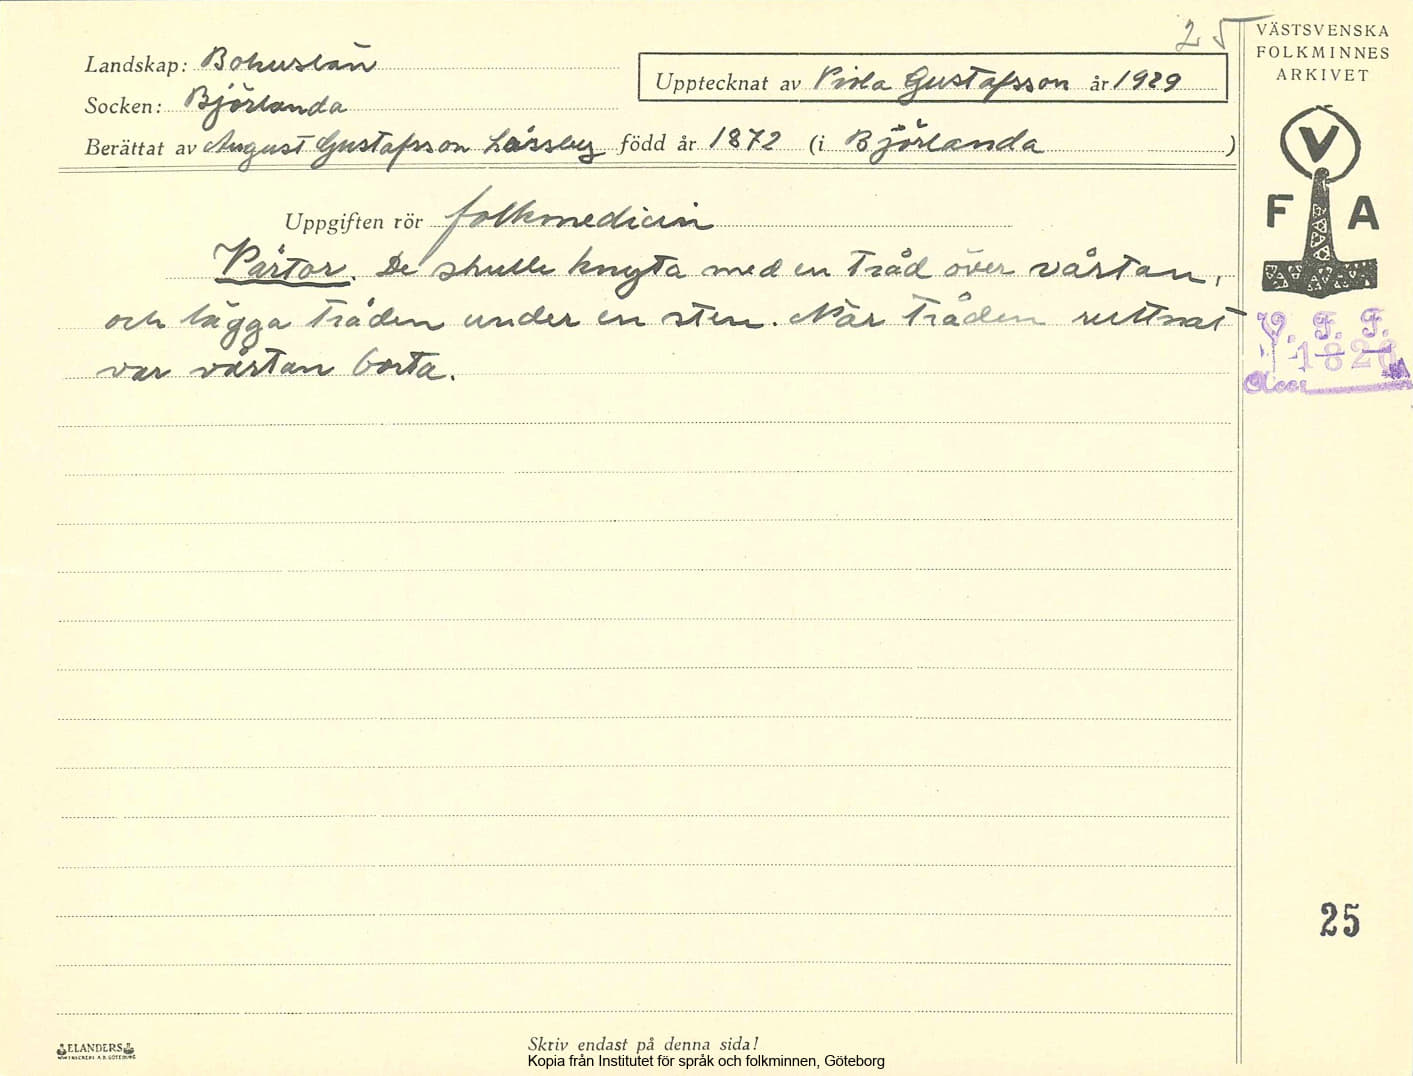 25
VÄSTSVENSKA
FOLKMINNES
ARKIVET
Landskap: Bohuslän
Upptecknat av Viola Gustafsson år 1929
Socken: Björlanda
Berättat av August Gustafsson Låssby född år 1872 (i Björlanda )
V
F A
Uppgiften rör folkmedicin
Vårtor. De skulle knyta med en tråd över vårtan,
och lägga tråden under en sten. När tråden ruttnat
var vårtan borta.
V. F. F.
1826
Acc.
25
ELANDERS
Skriv endast på denna sida!
Kopia från Institutet för språk och folkminnen, Göteborg